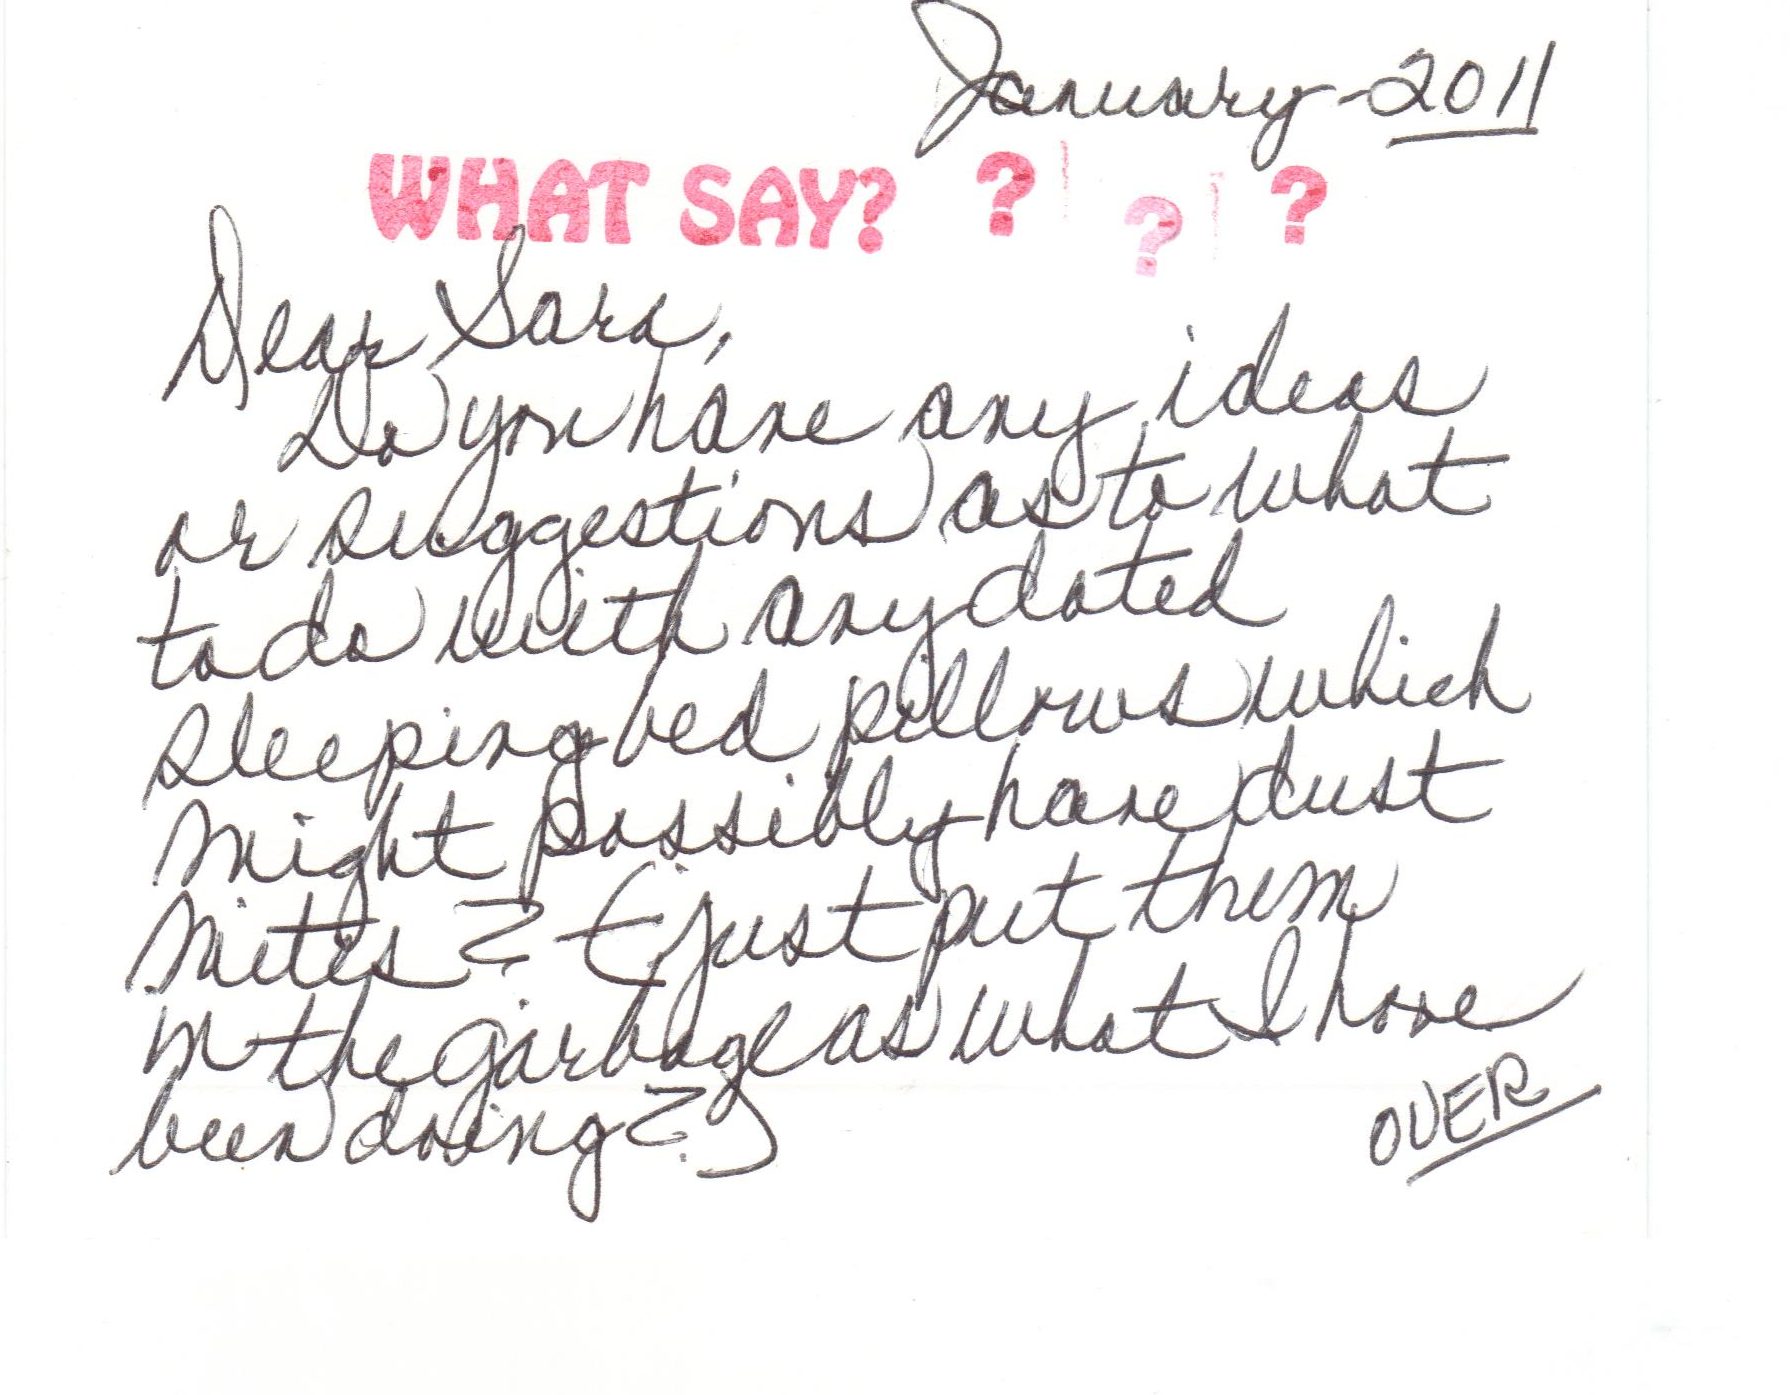 January-2011
WHAT SAY? ? ? ?
Dear Sara,
Do you have any ideas
or suggestions as to what
to do with any dated
sleeping bed pillows which
might possibly have dust
mites? (just put them
in the garbage as what I have
been doing?)
OVER